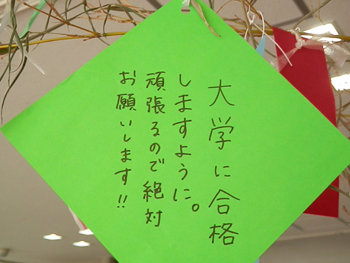 大学に合格
しますように。
頑張るので絶対
お願いします!!